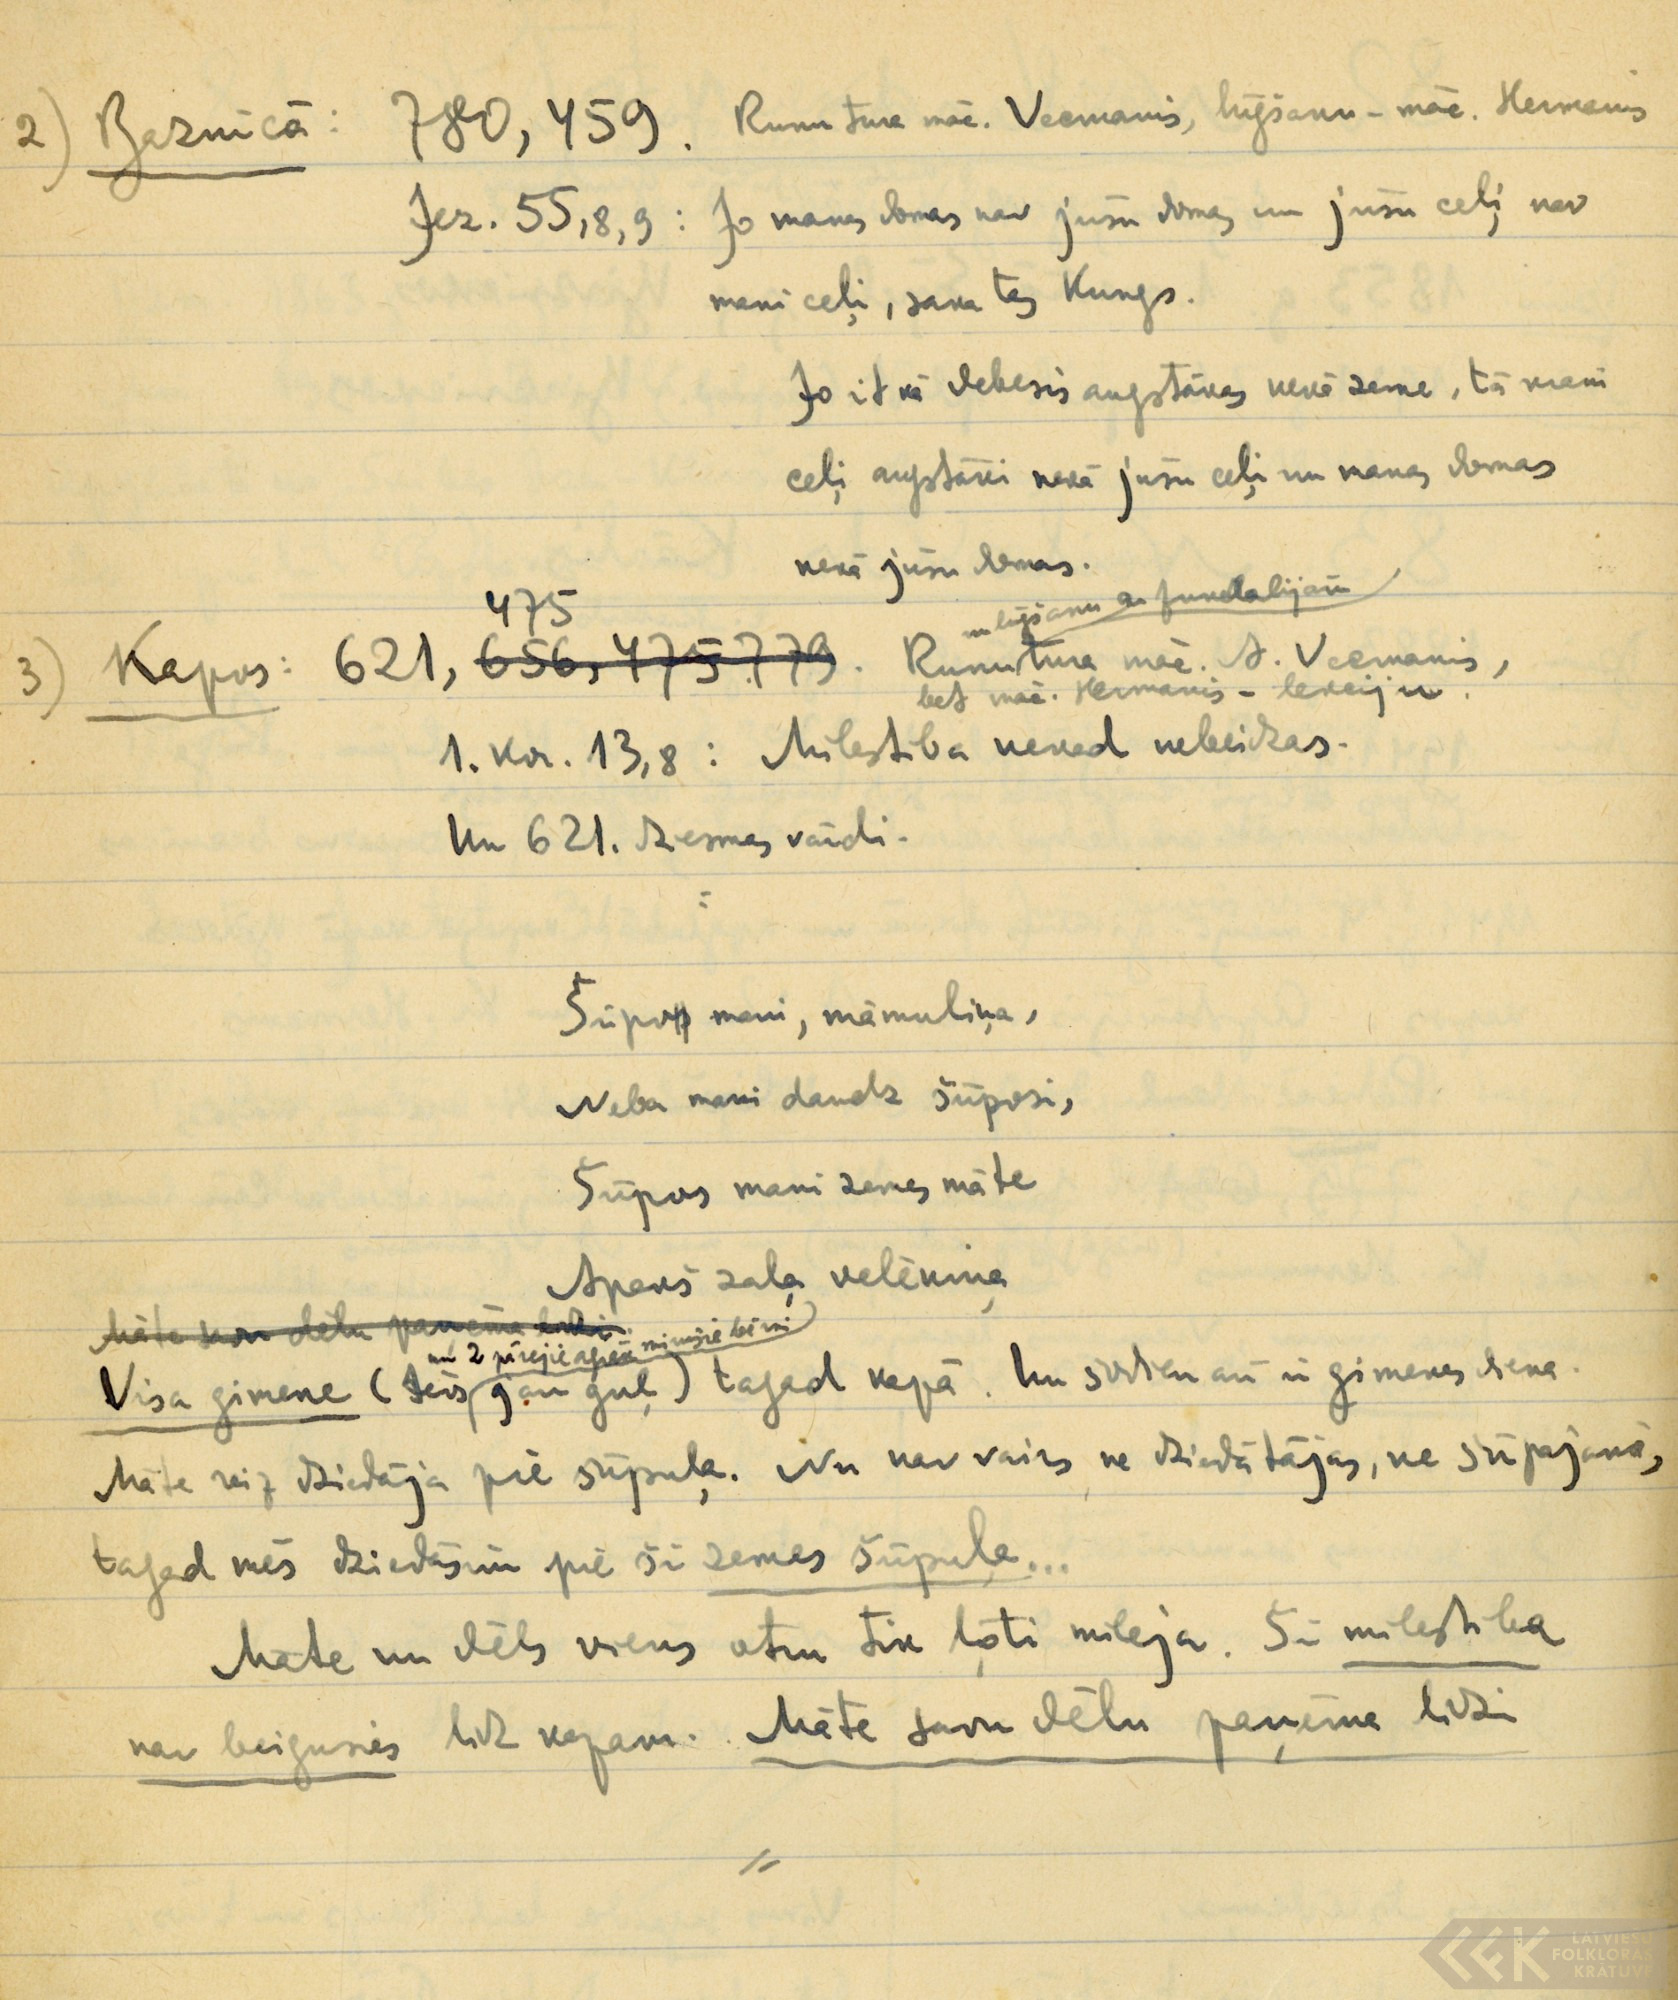 2) Baznīcā: 780, 459. Runu tura māc. Veemanis, lūgšanu – māc. Hermanis
Jez. 55,8,9: Jo manas domas nav jūsu domas un jūsu ceļi nav
mani ceļi, saka tas Kungs.
Jo it kā debesis augstākas nekā zeme, tā mani
ceļi augstāki nekā jūsu ceļi un manas domas
nekā jūsu domas.
475
un lūgšanu
3) Kapos: 621, 656, 475 779. Runu tura māc. A. Veemanis,
bet māc. Hermanis – lekciju.
1. Kor. 13,8: Mīlestība nekad nebeidzas.
Un 621. dziesmas vārdi.
:
Šūpo mani, māmuliņa,
Neba mani daudz šūposi,
Šūpos mani zemes māte
Apakš zaļa velēniņa
Māte savu dēlu paņēma līdzi.
un 2 pārējie agrāk mirušie bērni
Visa ģimene (tēvs jau guļ) tagad kapā. Un šodien arī ir ģimenes diena.
Māte reiz dziedāja pie šūpuļa. Nu nav vairs ne dziedātājas, ne šūpojamā,
tagad mēs dziedāsim pie šī zemes šūpuļa...
Māte un dēls viens otru tik ļoti mīlēja. Šī mīlestība
nav beigusies līdz kapam. Māte savu dēlu paņēma līdzi
//
LATVIEŠU
FOLKLORAS
KRĀTUVE
LFK